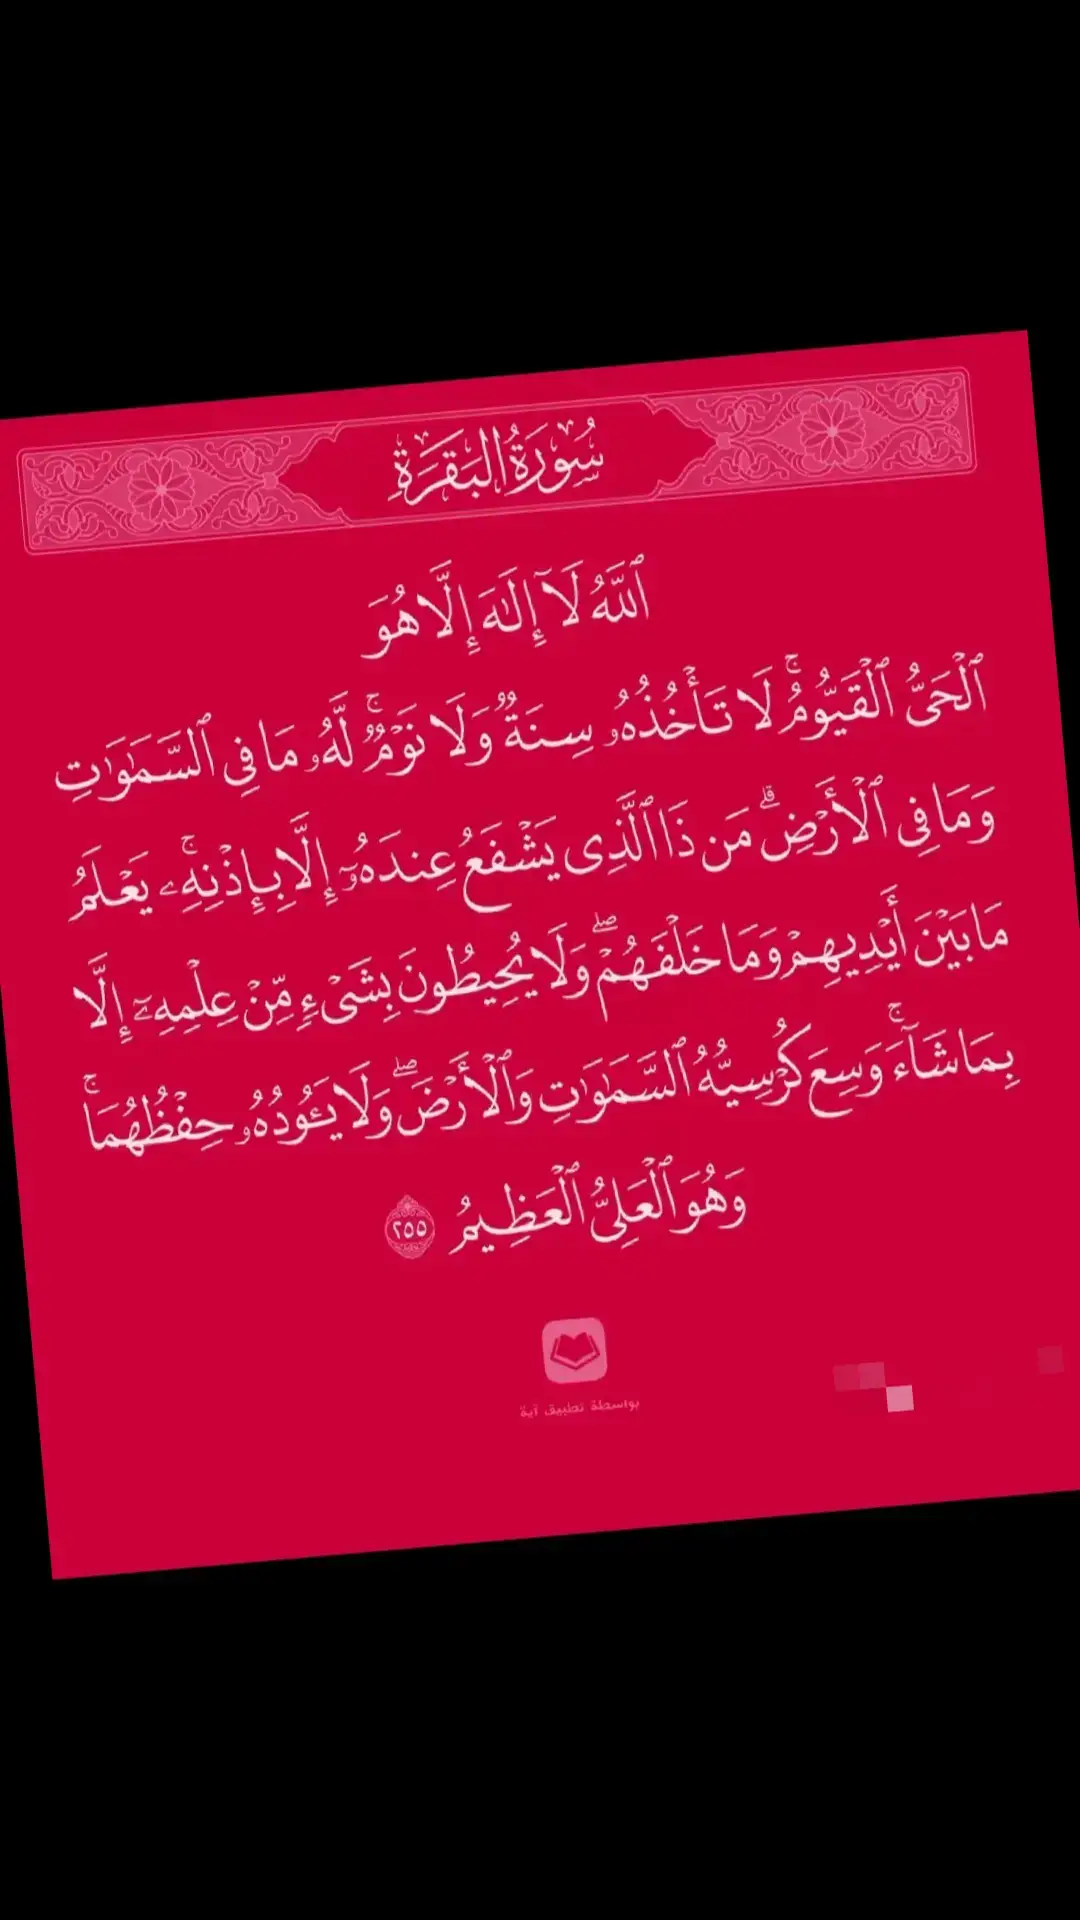 سُورَةُ البَقَرَةِ
ٱللَّهُ لَآ إِلَـٰهَ إِلَّا هُوَ
ٱلۡحَىُّ ٱلۡقَيُّومُۚ لَا تَأۡخُذُهُۥ سِنَةٌ وَلَا نَوۡمٌۚ لَّهُۥ مَا فِى ٱلسَّمَـٰوَٰتِ
وَمَا فِى ٱلۡأَرۡضِۗ مَن ذَا ٱلَّذِى يَشۡفَعُ عِندَهُۥٓ إِلَّا بِإِذۡنِهِۦۚ يَعۡلَمُ
مَا بَيۡنَ أَيۡدِيهِمۡ وَمَا خَلۡفَهُمۡۖ وَلَا يُحِيطُونَ بِشَىۡءٍ مِّنۡ عِلۡمِهِۦٓ إِلَّا
بِمَا شَآءَۚ وَسِعَ كُرۡسِيُّهُ ٱلسَّمَـٰوَٰتِ وَٱلۡأَرۡضَۖ وَلَا يَـُٔودُهُۥ حِفۡظُهُمَاۚ
وَهُوَ ٱلۡعَلِىُّ ٱلۡعَظِيمُ ٢٥٥
بواسطة تطبيق آية